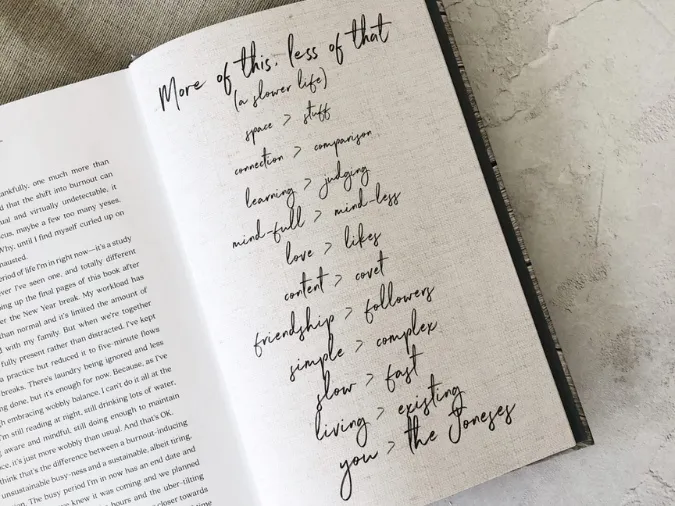 ankfully, one much more than
d that the shift into burnout can
ual and virtually undetectable, it
cus, maybe a few too many yeses.
Why, until I find myself curled up on
hausted.
period of life I'm in right now—it's a study
ver I've seen one, and totally different
ning up the final pages of this book after
er the New Year break. My workload has
than normal and it's limited the amount of
d with my family. But when we're together
fully present rather than distracted. I've kept
a practice but reduced it to five-minute flows
breaks. There's laundry being ignored and less
ng done, but it's enough for now. Because, as I've
h embracing wobbly balance, I can't do it all at the
'm still reading at night, still drinking lots of water,
g aware and mindful, still doing enough to maintain
ce, it's just more wobbly than usual. And that's OK.
think that's the difference between a burnout-inducing
unsustainable busy-ness and a sustainable, albeit tiring,
son. The busy period I'm in now has an end date and
e knew it was coming and we planned
hours and the uber-tilting
closer towards
time
More of this, less of that
(a slower life)
space > stuff
connection > comparison
learning > judging
mind-full > mind-less
love > likes
content > covet
friendship > followers
simple > complex
slow > fast
living > existing
you > the Joneses